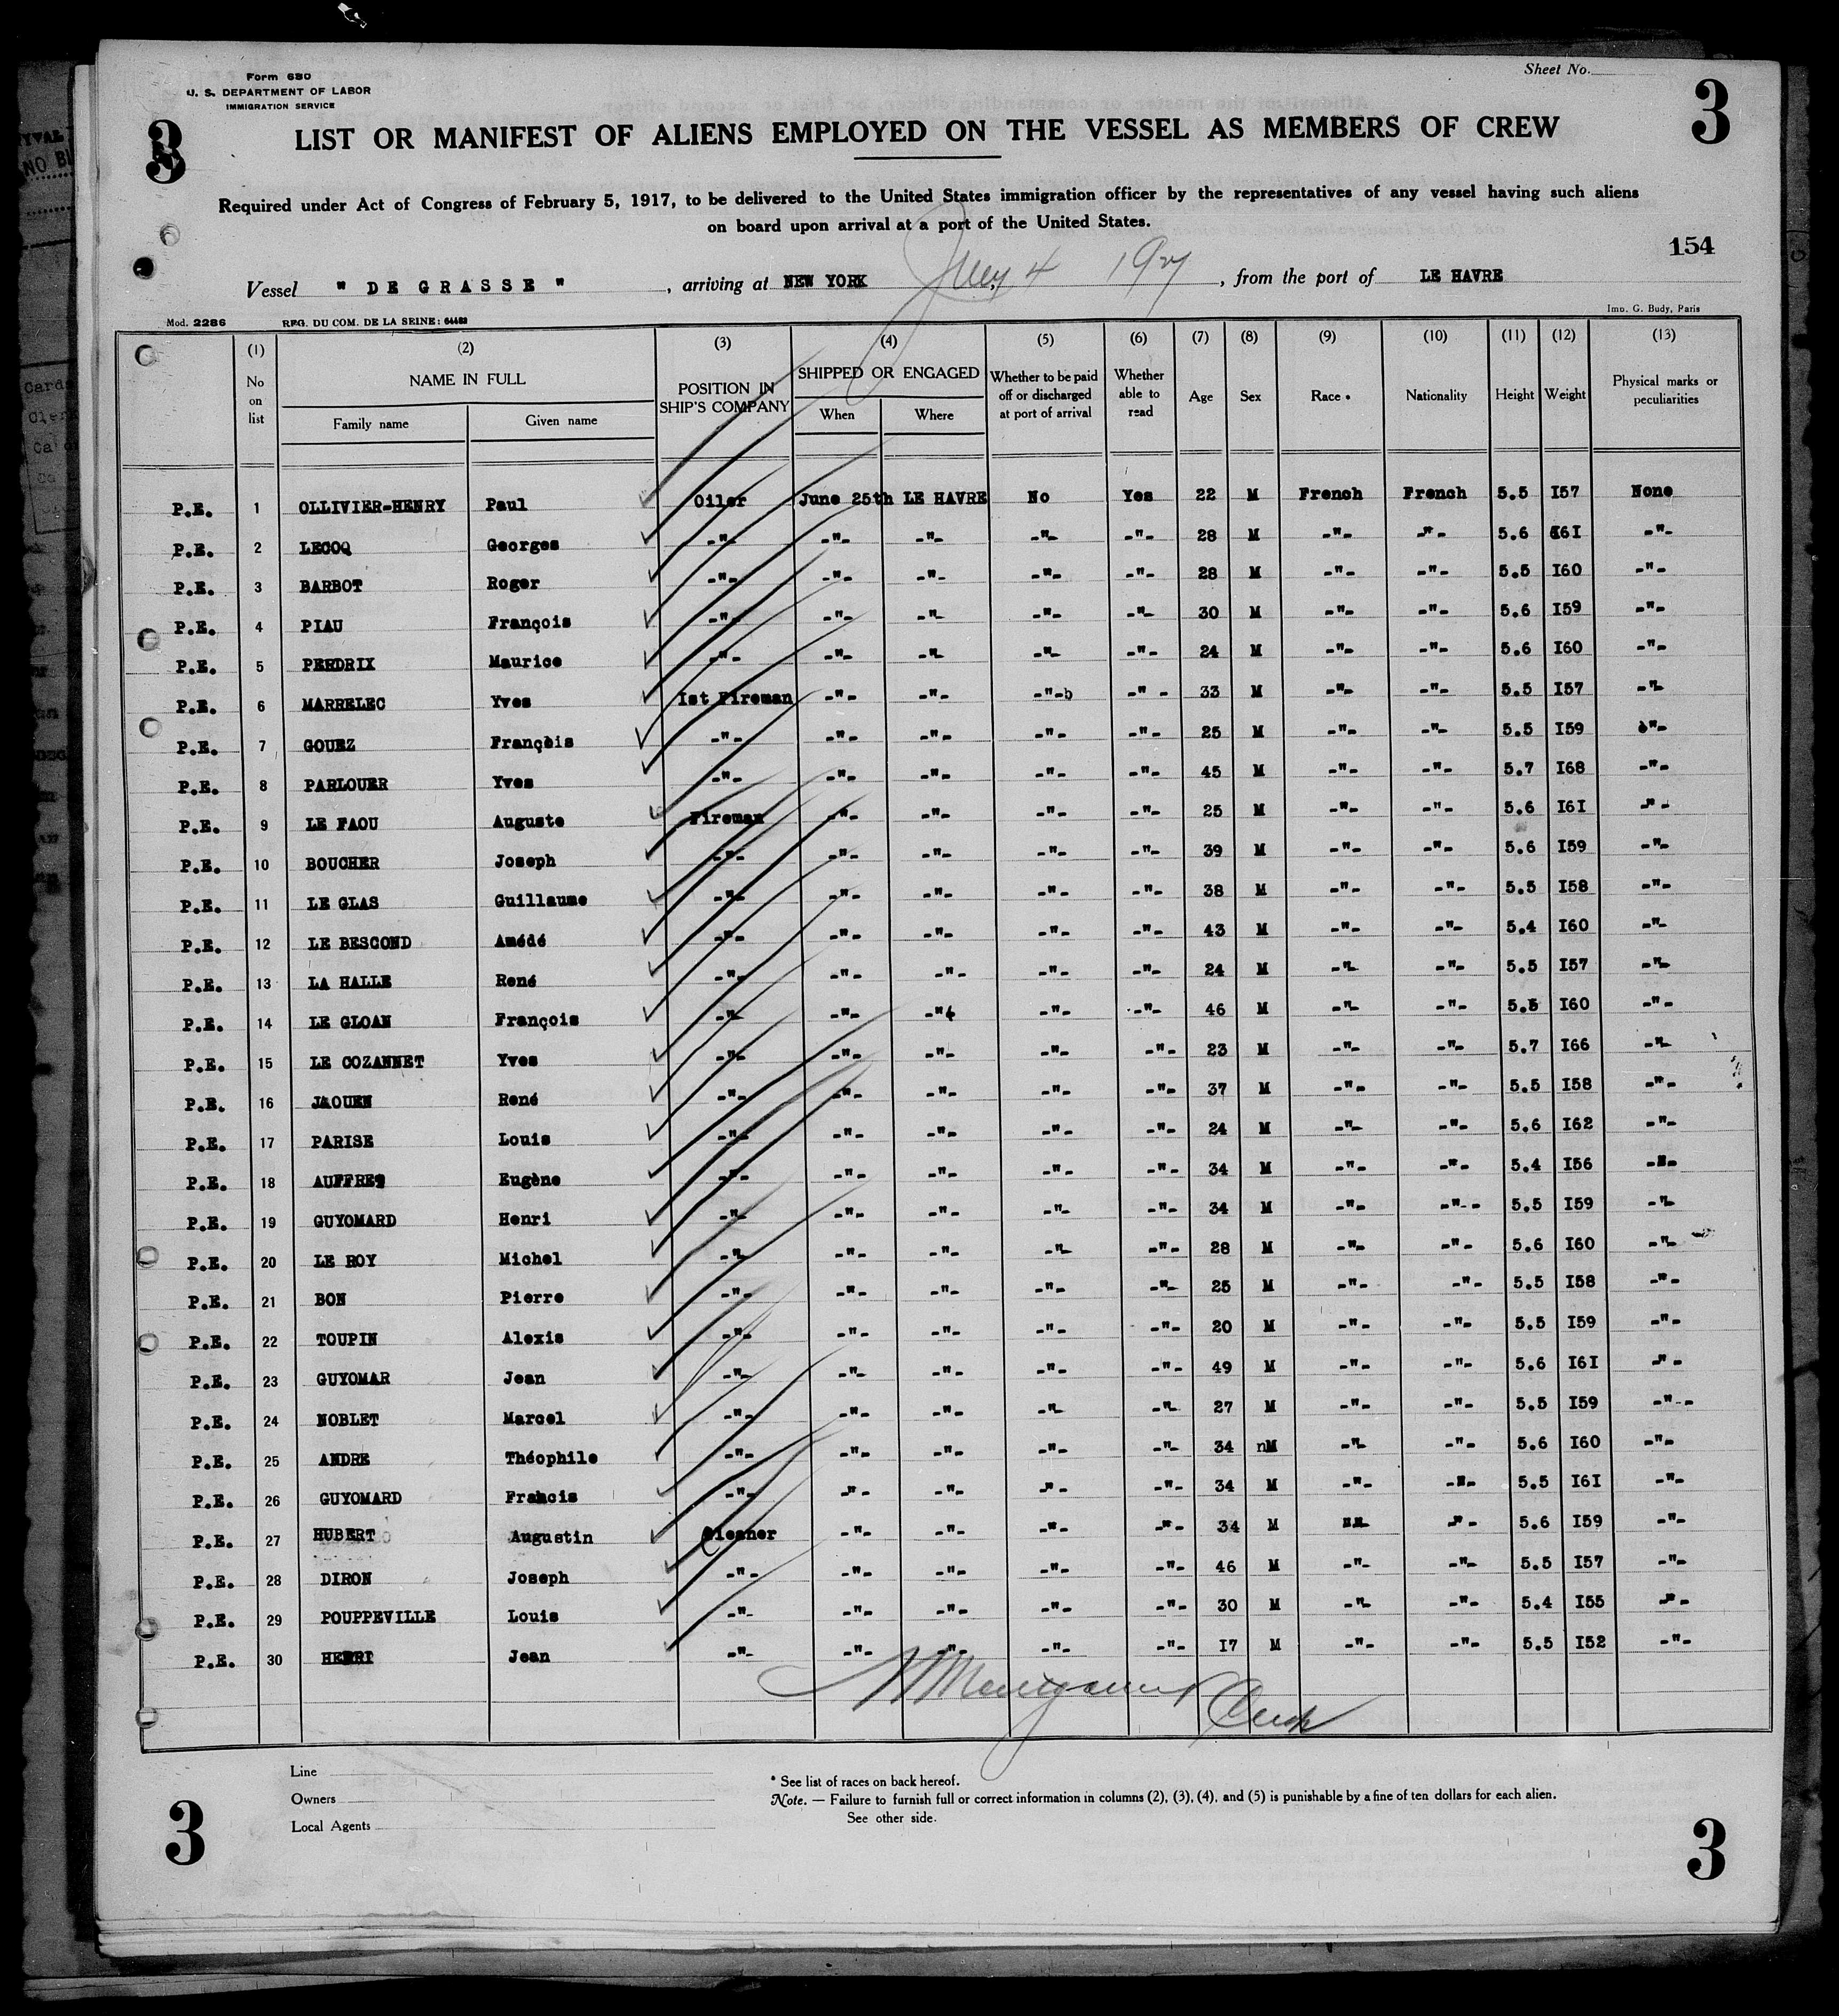 Sheet No.
Form 680
U. S. DEPARTMENT OF LABOR
IMMIGRATION SERVICE
3 3
LIST OR MANIFEST OF ALIENS EMPLOYED ON THE VESSEL AS MEMBERS OF CREW
Required under Act of Congress of February 5, 1917, to be delivered to the United States immigration officer by the representatives of any vessel having such aliens
on board upon arrival at a port of the United States.
154
Vessel " DE GRASSE " , arriving at NEW YORK July 4 1927 , from the port of LE HAVRE
Mod. 2286 REG. DU COM. DE LA SEINE: 64483 Imp. G. Budy, Paris
(1) (2) (3) (4) (5) (6) (7) (8) (9) (10) (11) (12) (13)
No on list NAME IN FULL POSITION IN SHIP'S COMPANY SHIPPED OR ENGAGED Whether to be paid off or discharged at port of arrival Whether able to read Age Sex Race * Nationality Height Weight Physical marks or peculiarities
Family name Given name When Where
P.E. 1 OLLIVIER-HENRY Paul Oiler June 25th LE HAVRE No Yes 22 M French French 5.5 I57 None
P.E. 2 LECOQ Georges -"- -"- -"- -"- -"- 28 M -"- -"- 5.6 I6I -"-
P.E. 3 BARBOT Roger -"- -"- -"- -"- -"- 28 M -"- -"- 5.5 I60 -"-
P.E. 4 PIAU François -"- -"- -"- -"- -"- 30 M -"- -"- 5.6 I59 -"-
P.E. 5 PERDRIX Maurice -"- -"- -"- -"- -"- 24 M -"- -"- 5.6 I60 -"-
P.E. 6 MARRELEC Yves Ist Fireman -"- -"- -"-b -"- 33 M -"- -"- 5.5 I57 -"-
P.E. 7 GOUEZ François -"- -"- -"- -"- -"- 25 M -"- -"- 5.5 I59 -"-
P.E. 8 PARLOUER Yves -"- -"- -"- -"- -"- 45 M -"- -"- 5.7 I68 -"-
P.E. 9 LE FAOU Auguste Fireman -"- -"- -"- -"- 25 M -"- -"- 5.6 I6I -"-
P.E. 10 BOUCHER Joseph -"- -"- -"- -"- -"- 39 M -"- -"- 5.6 I59 -"-
P.E. 11 LE GLAS Guillaume -"- -"- -"- -"- -"- 38 M -"- -"- 5.5 I58 -"-
P.E. 12 LE BESCOND Amédé -"- -"- -"- -"- -"- 43 M -"- -"- 5.4 I60 -"-
P.E. 13 LA HALLE René -"- -"- -"- -"- -"- 24 M -"- -"- 5.5 I57 -"-
P.E. 14 LE GLOAN François -"- -"- -"- -"- -"- 46 M -"- -"- 5.5 I60 -"-
P.E. 15 LE COZANNET Yves -"- -"- -"- -"- -"- 23 M -"- -"- 5.7 I66 -"-
P.E. 16 JAOUEN René -"- -"- -"- -"- -"- 37 M -"- -"- 5.5 I58 -"-
P.E. 17 PARISE Louis -"- -"- -"- -"- -"- 24 M -"- -"- 5.6 I62 -"-
P.E. 18 AUFFRET Eugène -"- -"- -"- -"- -"- 34 M -"- -"- 5.4 I56 -"-
P.E. 19 GUYOMARD Henri -"- -"- -"- -"- -"- 34 M -"- -"-- 5.5 I59 -"-
P.E. 20 LE ROY Michel -"- -"- -"- -"- -"- 28 M -"- -"- 5.6 I60 -"-
P.E. 21 BON Pierre -"- -"- -"- -"- -"- 25 M -"- -"- 5.5 I58 -"-
P.E. 22 TOUPIN Alexis -"- -"- -"- -"- -"- 20 M -"- -"- 5.5 I59 -"-
P.E. 23 GUYOMAR Jean -"- -"- -"- -"- -"- 49 M -"- -"- 5.6 I6I -"-
P.E. 24 NOBLET Marcel -"- -"- -"- -"- -"- 27 M -"- -"- 5.5 I59 -"--
P.E. 25 ANDRE Théophile -"- -"- -"- -"- -"- 34 nM -"- -"- 5.6 I60 -"-
P.E. 26 GUYOMARD Francis -"- -"- -"- -"- -"- 34 M -"- -"- 5.5 I6I -"-
P.E. 27 HUBERT Augustin Cleaner -"- -"- -"- -"- 34 M -"- -"- 5.6 I59 -"-
P.E. 28 DIRON Joseph -"- -"- -"- -"- -"- 46 M -"- -"- 5.5 I57 -"-
P.E. 29 POUPPEVILLE Louis -"- -"- -"- -"- -"- 30 M -"- -"- 5.4 I55 -"-
P.E. 30 HENRI Jean -"- -"- -"- -"- -"- I7 M -"- -"- 5.5 I52 -"-
Line
Owners
Local Agents
* See list of races on back hereof.
Note. — Failure to furnish full or correct information in columns (2), (3), (4), and (5) is punishable by a fine of ten dollars for each alien.
See other side.
3 3